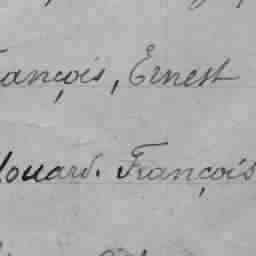 ançois, Ernest
douard. François